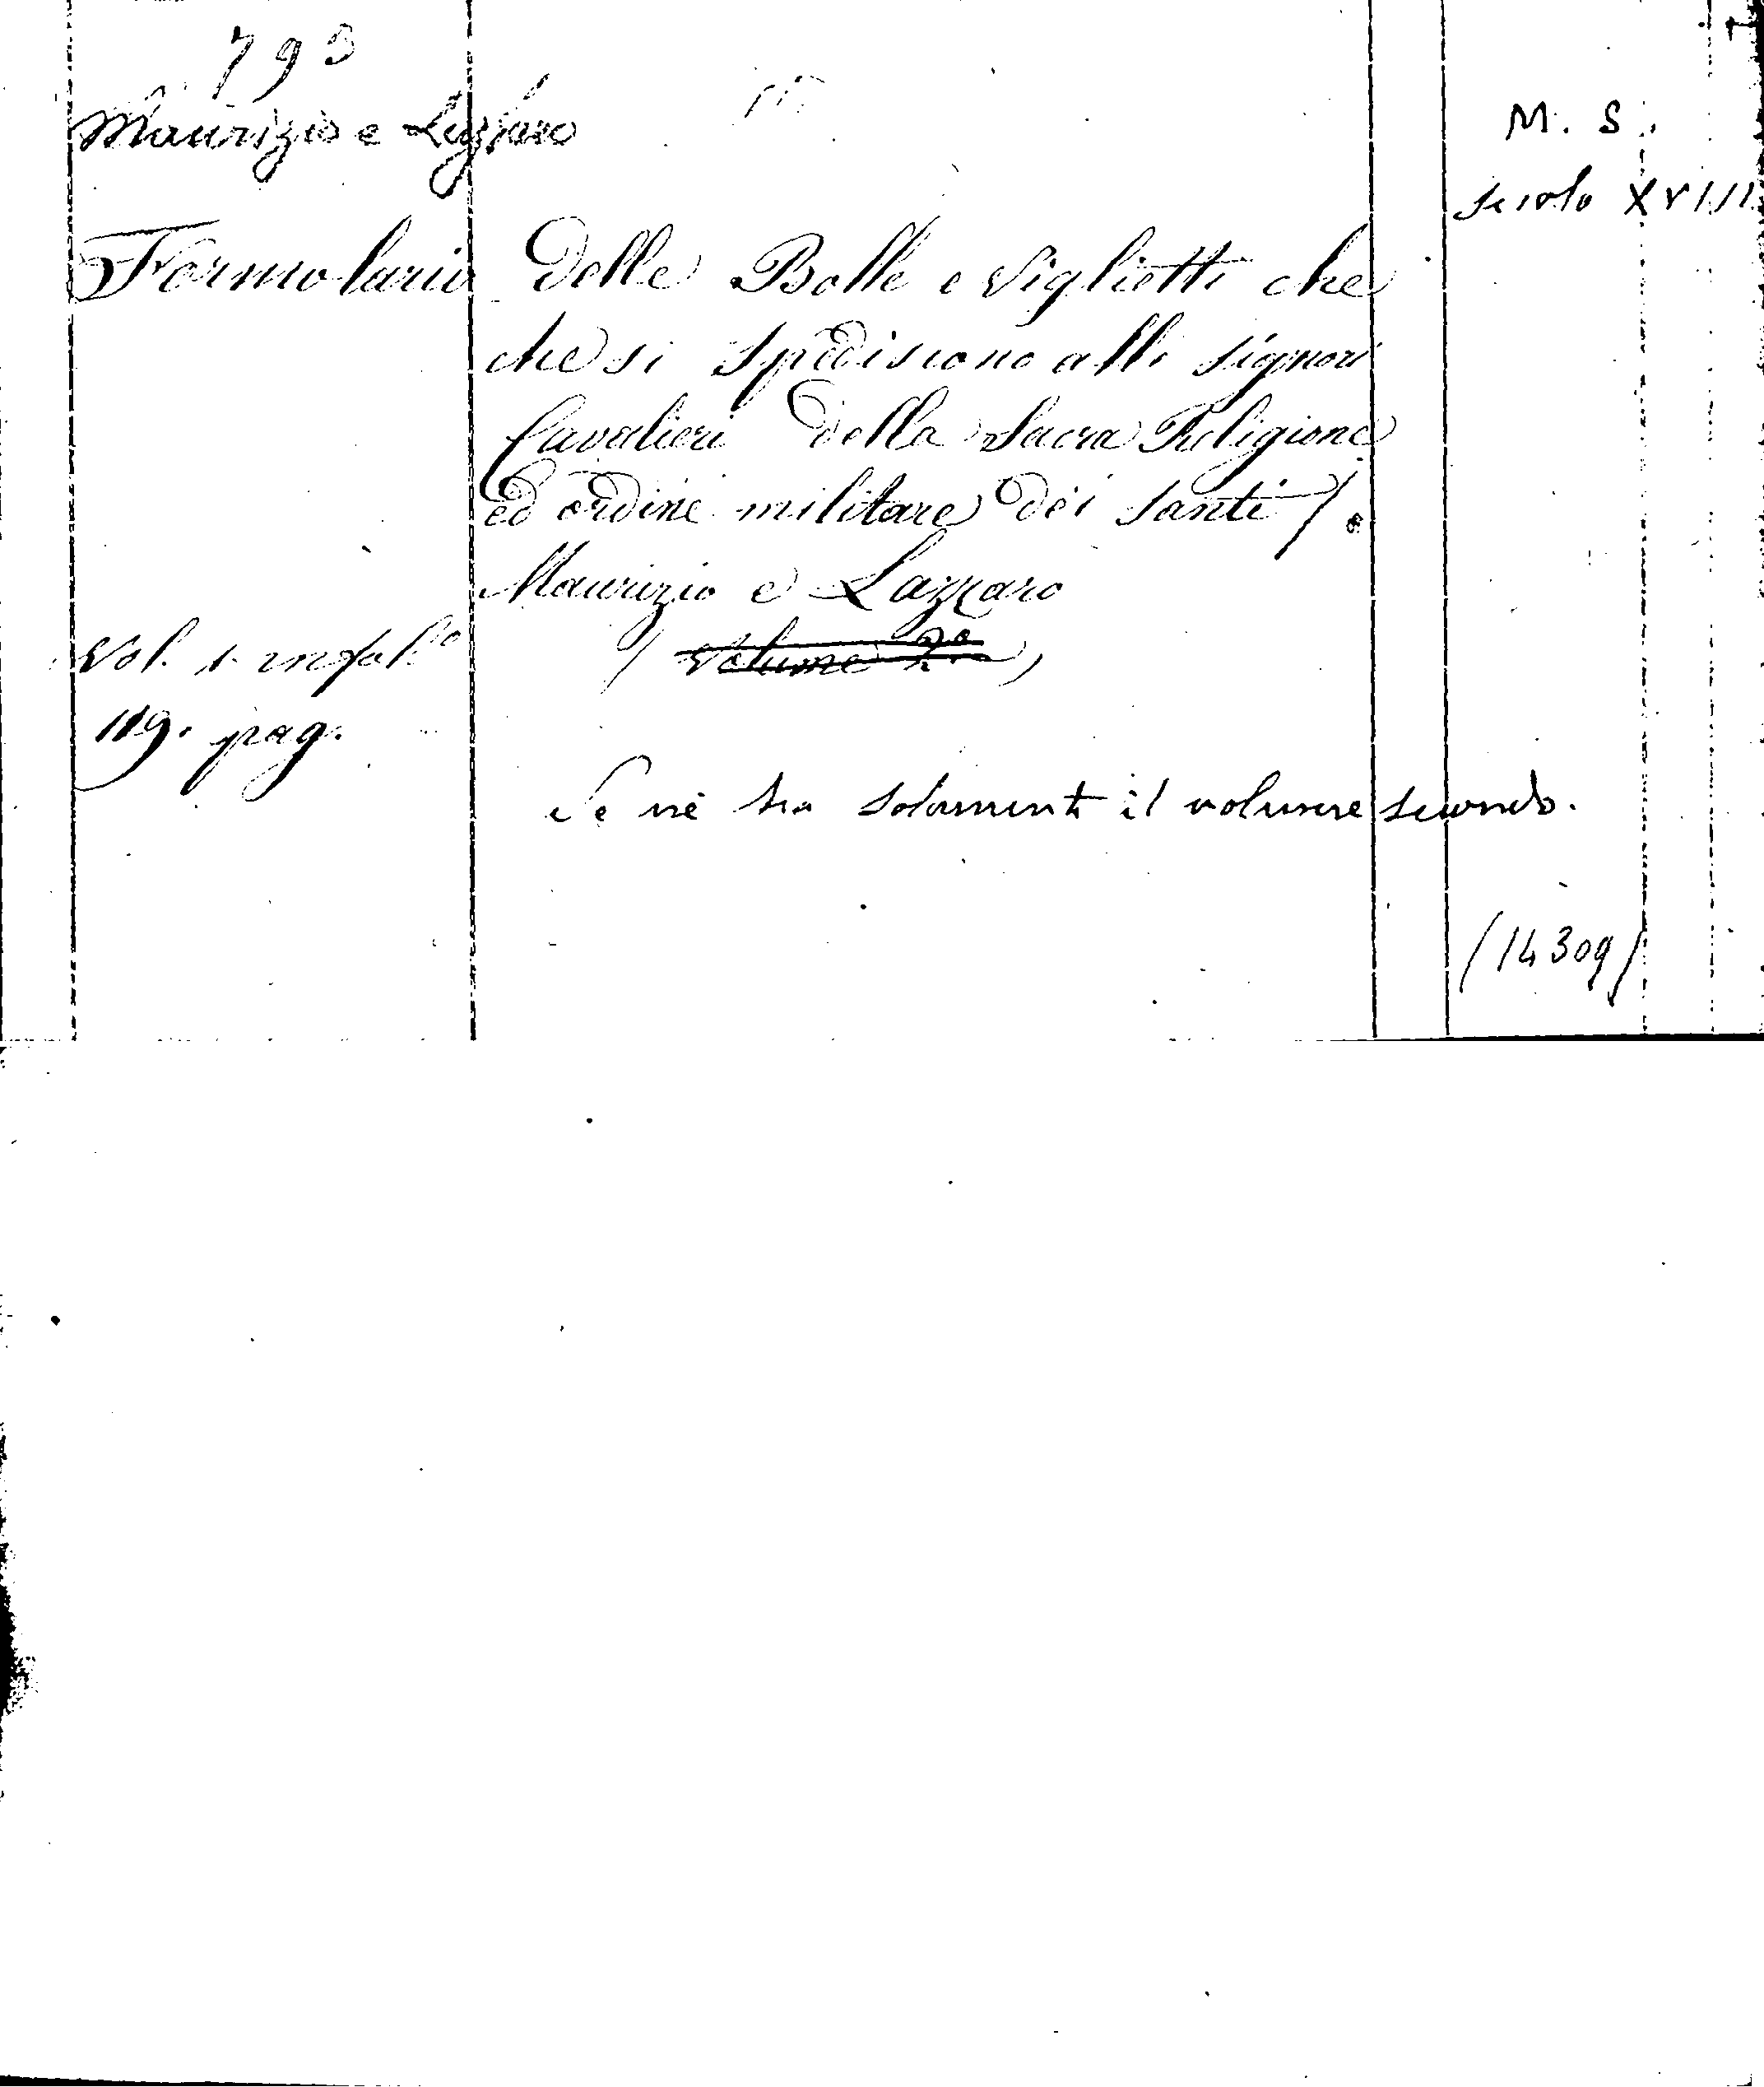 793
Maurizio e Lazzaro
M. S.
secolo XVIII
Formolario delle Bolle e Viglietti che
che si spediscono alli signori
Cavalieri della Sacra Religione
ed ordine militare dei Santi /.
Maurizio e Lazzaro
Vol. 1. in fol.º
( Volume 2º )
119. pag.
Se ne ha solamente il volume secondo.
(14309)